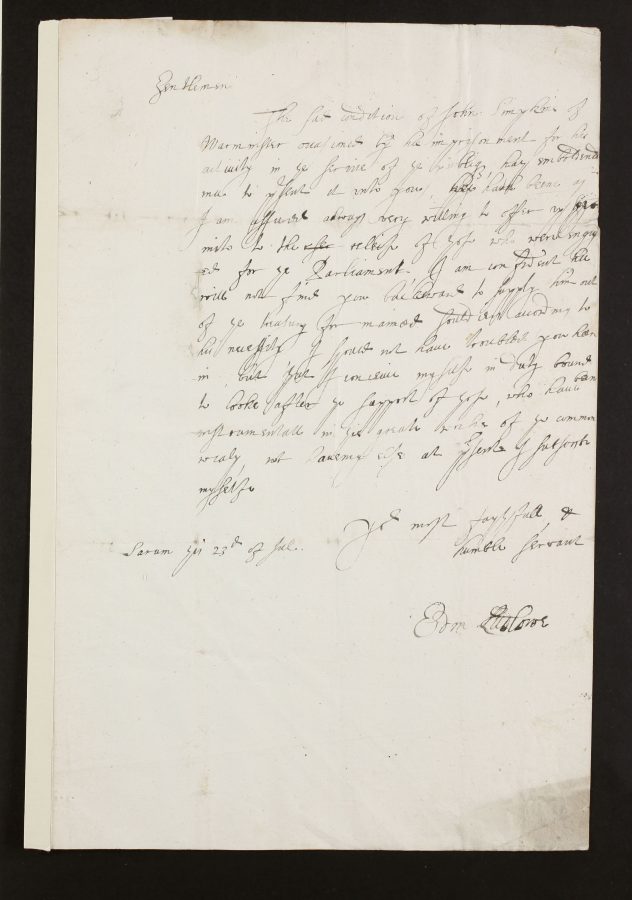 Gentlemen
The sad condition of John Simpkins of
Warminster occationed by his imprisonment for his
activity in ye service of ye publiq, hath imboldened
mee to p'sent it unto you, who have been as
I am assured alwayes very willing to offer
to the releife of those who were ingag
ed for ye Parliament, I am confident hee
will not find you backward to supply him out
of ye treasury for maimed souldiers according to
his necessity, I should not have troubled you heer
in but that I conceive my selfe in duty bound
to looke after ye support of those, who have been
instrumentall in ye greate worke of ye common
wealth, not haveing else at p'sent I subscribe
my selfe
Yor most faythfull &
humble servant
Sarum this 23th of Jul..
Edm Ludlowe